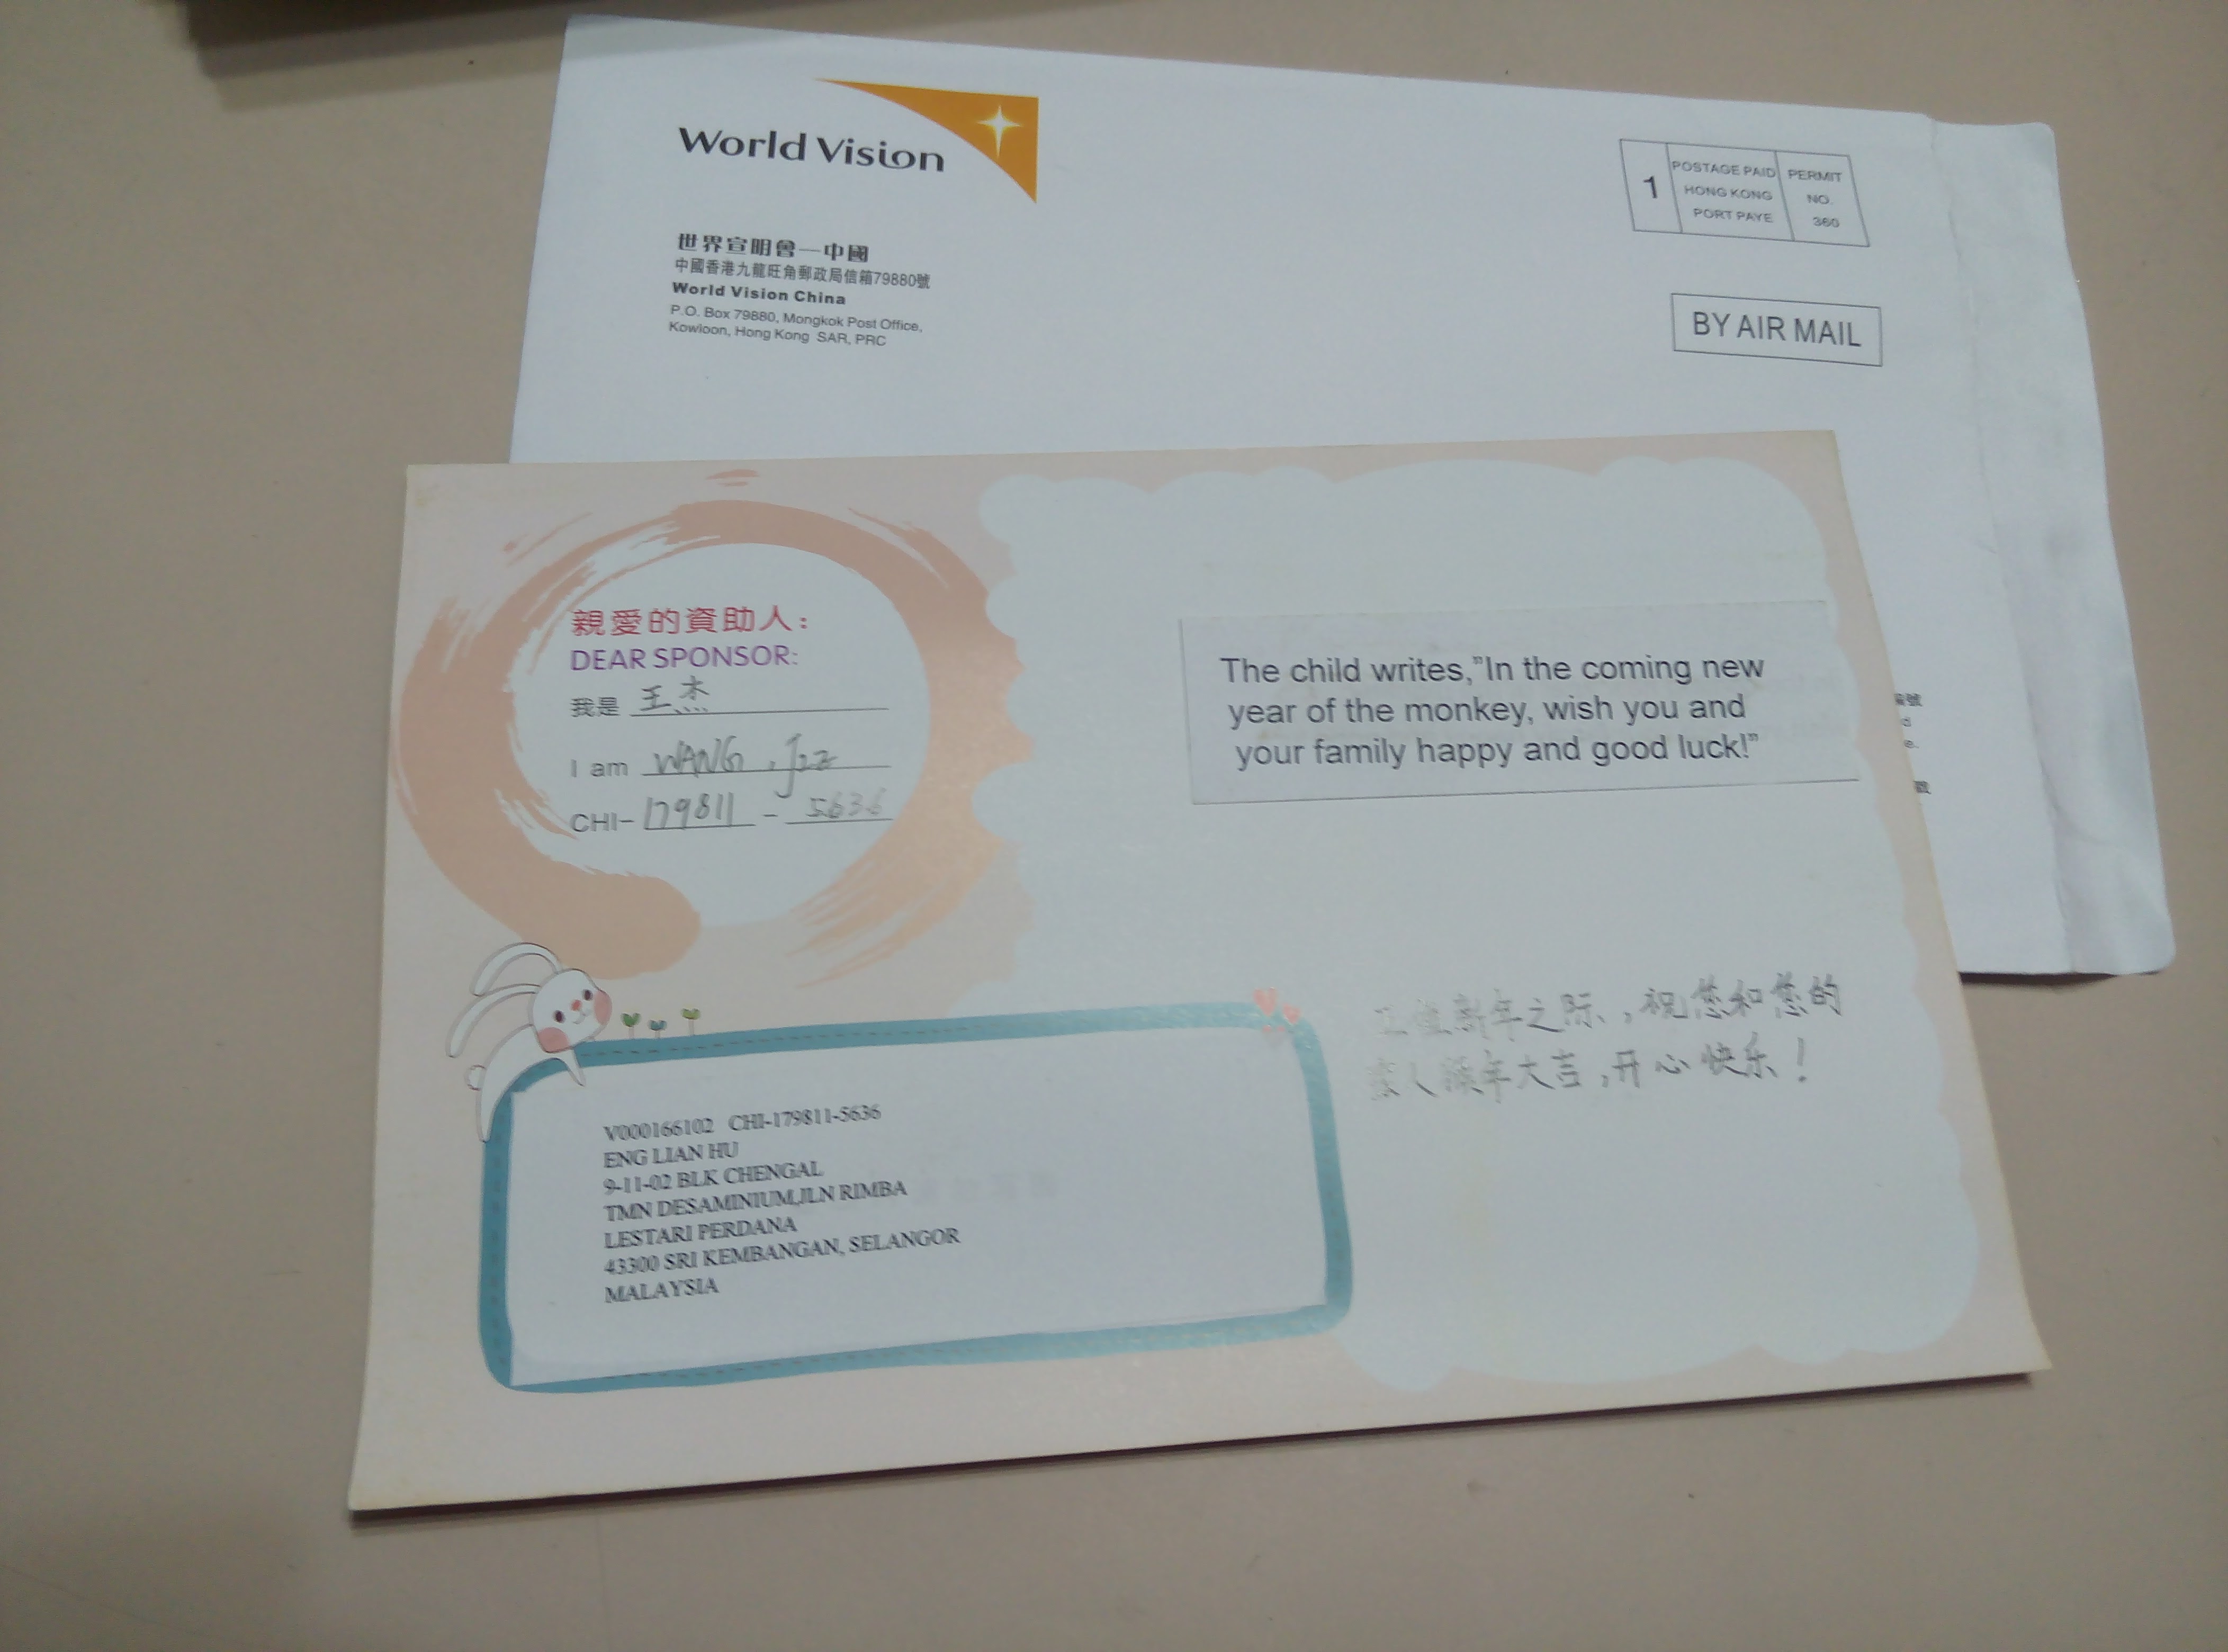 World Vision
世界宣明會—中國
中國香港九龍旺角郵政局信箱79880號
World Vision China
P.O. Box 79880, Mongkok Post Office,
Kowloon, Hong Kong SAR, PRC
1
POSTAGE PAID
HONG KONG
PORT PAYE
PERMIT
NO.
360
BY AIR MAIL
親愛的資助人:
DEAR SPONSOR:
我是 王杰
I am WANG, Jie
CHI-179811-5636
The child writes,"In the coming new
year of the monkey, wish you and
your family happy and good luck!"
正值新年之际,祝您和您的
家人猴年大吉,开心快乐!
V000166102 CHI-179811-5636
ENG LIAN HU
9-11-02 BLK CHENGAL
TMN DESAMINIUM,JLN RIMBA
LESTARI PERDANA
43300 SRI KEMBANGAN, SELANGOR
MALAYSIA